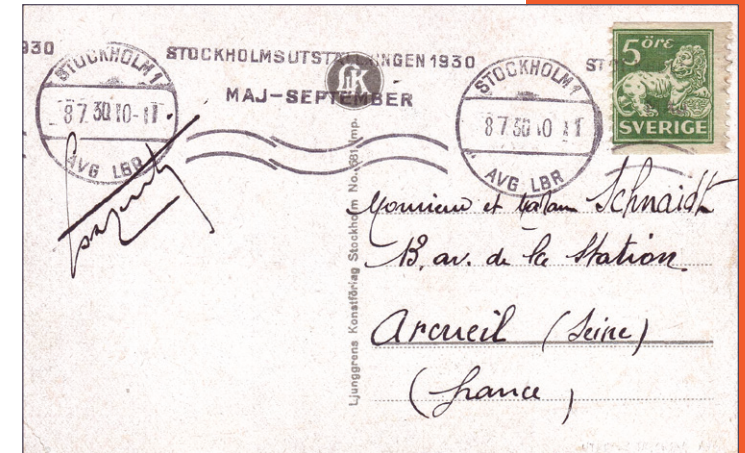 930
STOCKHOLMSUTSTÄLLNINGEN 1930
MAJ-SEPTEMBER
STOCKHOLM 1
8 7.30 10-11
AVG LBR
LJK
STOCKHOLM 1
8 7.30 10 11
AVG LBR
ST
5 öre
SVERIGE
Ljunggrens Konstförlag Stockholm No. 681 Imp.
Monsieur et Madam Schnaidt
13, av. de la Station
Arcueil (Seine)
(France)